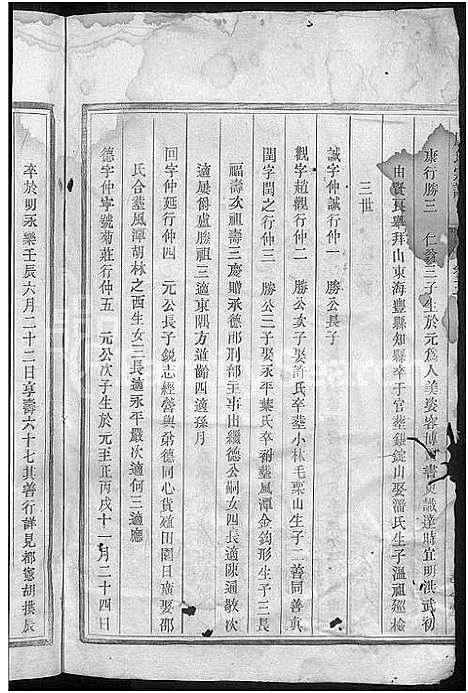 康行勝三 仁翁三子生於元為人美姿容博 書史識達時宜明洪武初
由賢良舉拜山東海豐縣知縣卒于官塟銀錠山娶潘氏生子溫祖
三世
誠字仲誠行仲一 勝公長子
觀字趙觀行仲二 勝公次子娶許氏卒塟小林毛栗山生子二善同善真
閏字閏之行仲三 勝公三子娶永平葉氏卒祔塟風潭金鈎形生子三長
福壽次祖壽三慶贈承德郎刑部主事出繼德公嗣女四長適陳遜敬次
適屍爵盧勝祖三適東隅方道齡四適孫月
回字仲延行仲四 元公長子銳志經營與弟德同心貨殖田園日廣娶邵
氏合塟風潭胡林之西生女三長適永平嚴次適何三適應
德字仲寧號菊莊行仲五 元公次子生於元至正丙戌十一月二十四日
卒於明永樂壬辰六月二十二日享壽六十七其善行詳見都憲胡撰辰